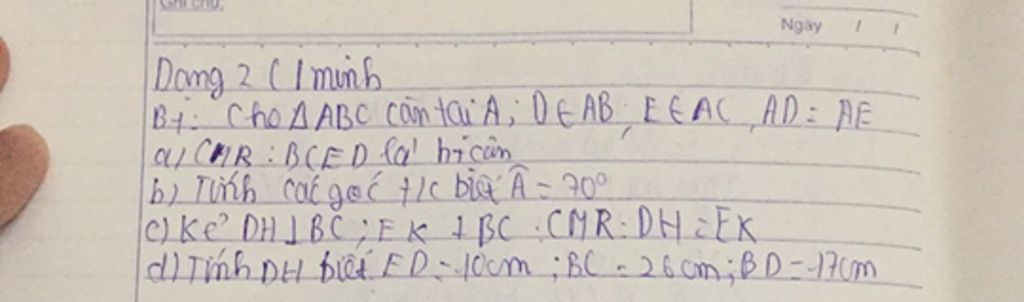 Ghi chú:
Ngày / /
Dạng 2 ( / minh
B1: Cho Δ ABC cân tại A; D ∈ AB, E ∈ AC, AD = AE
a) CMR : BCED là ht cân
b) Tính các góc t/c biết Â = 70°
c) Kẻ DH ⊥ BC ; EK ⊥ BC . CMR: DH = EK
d) Tính DH biết ED = 10cm ; BC = 26cm ; BD = 17cm